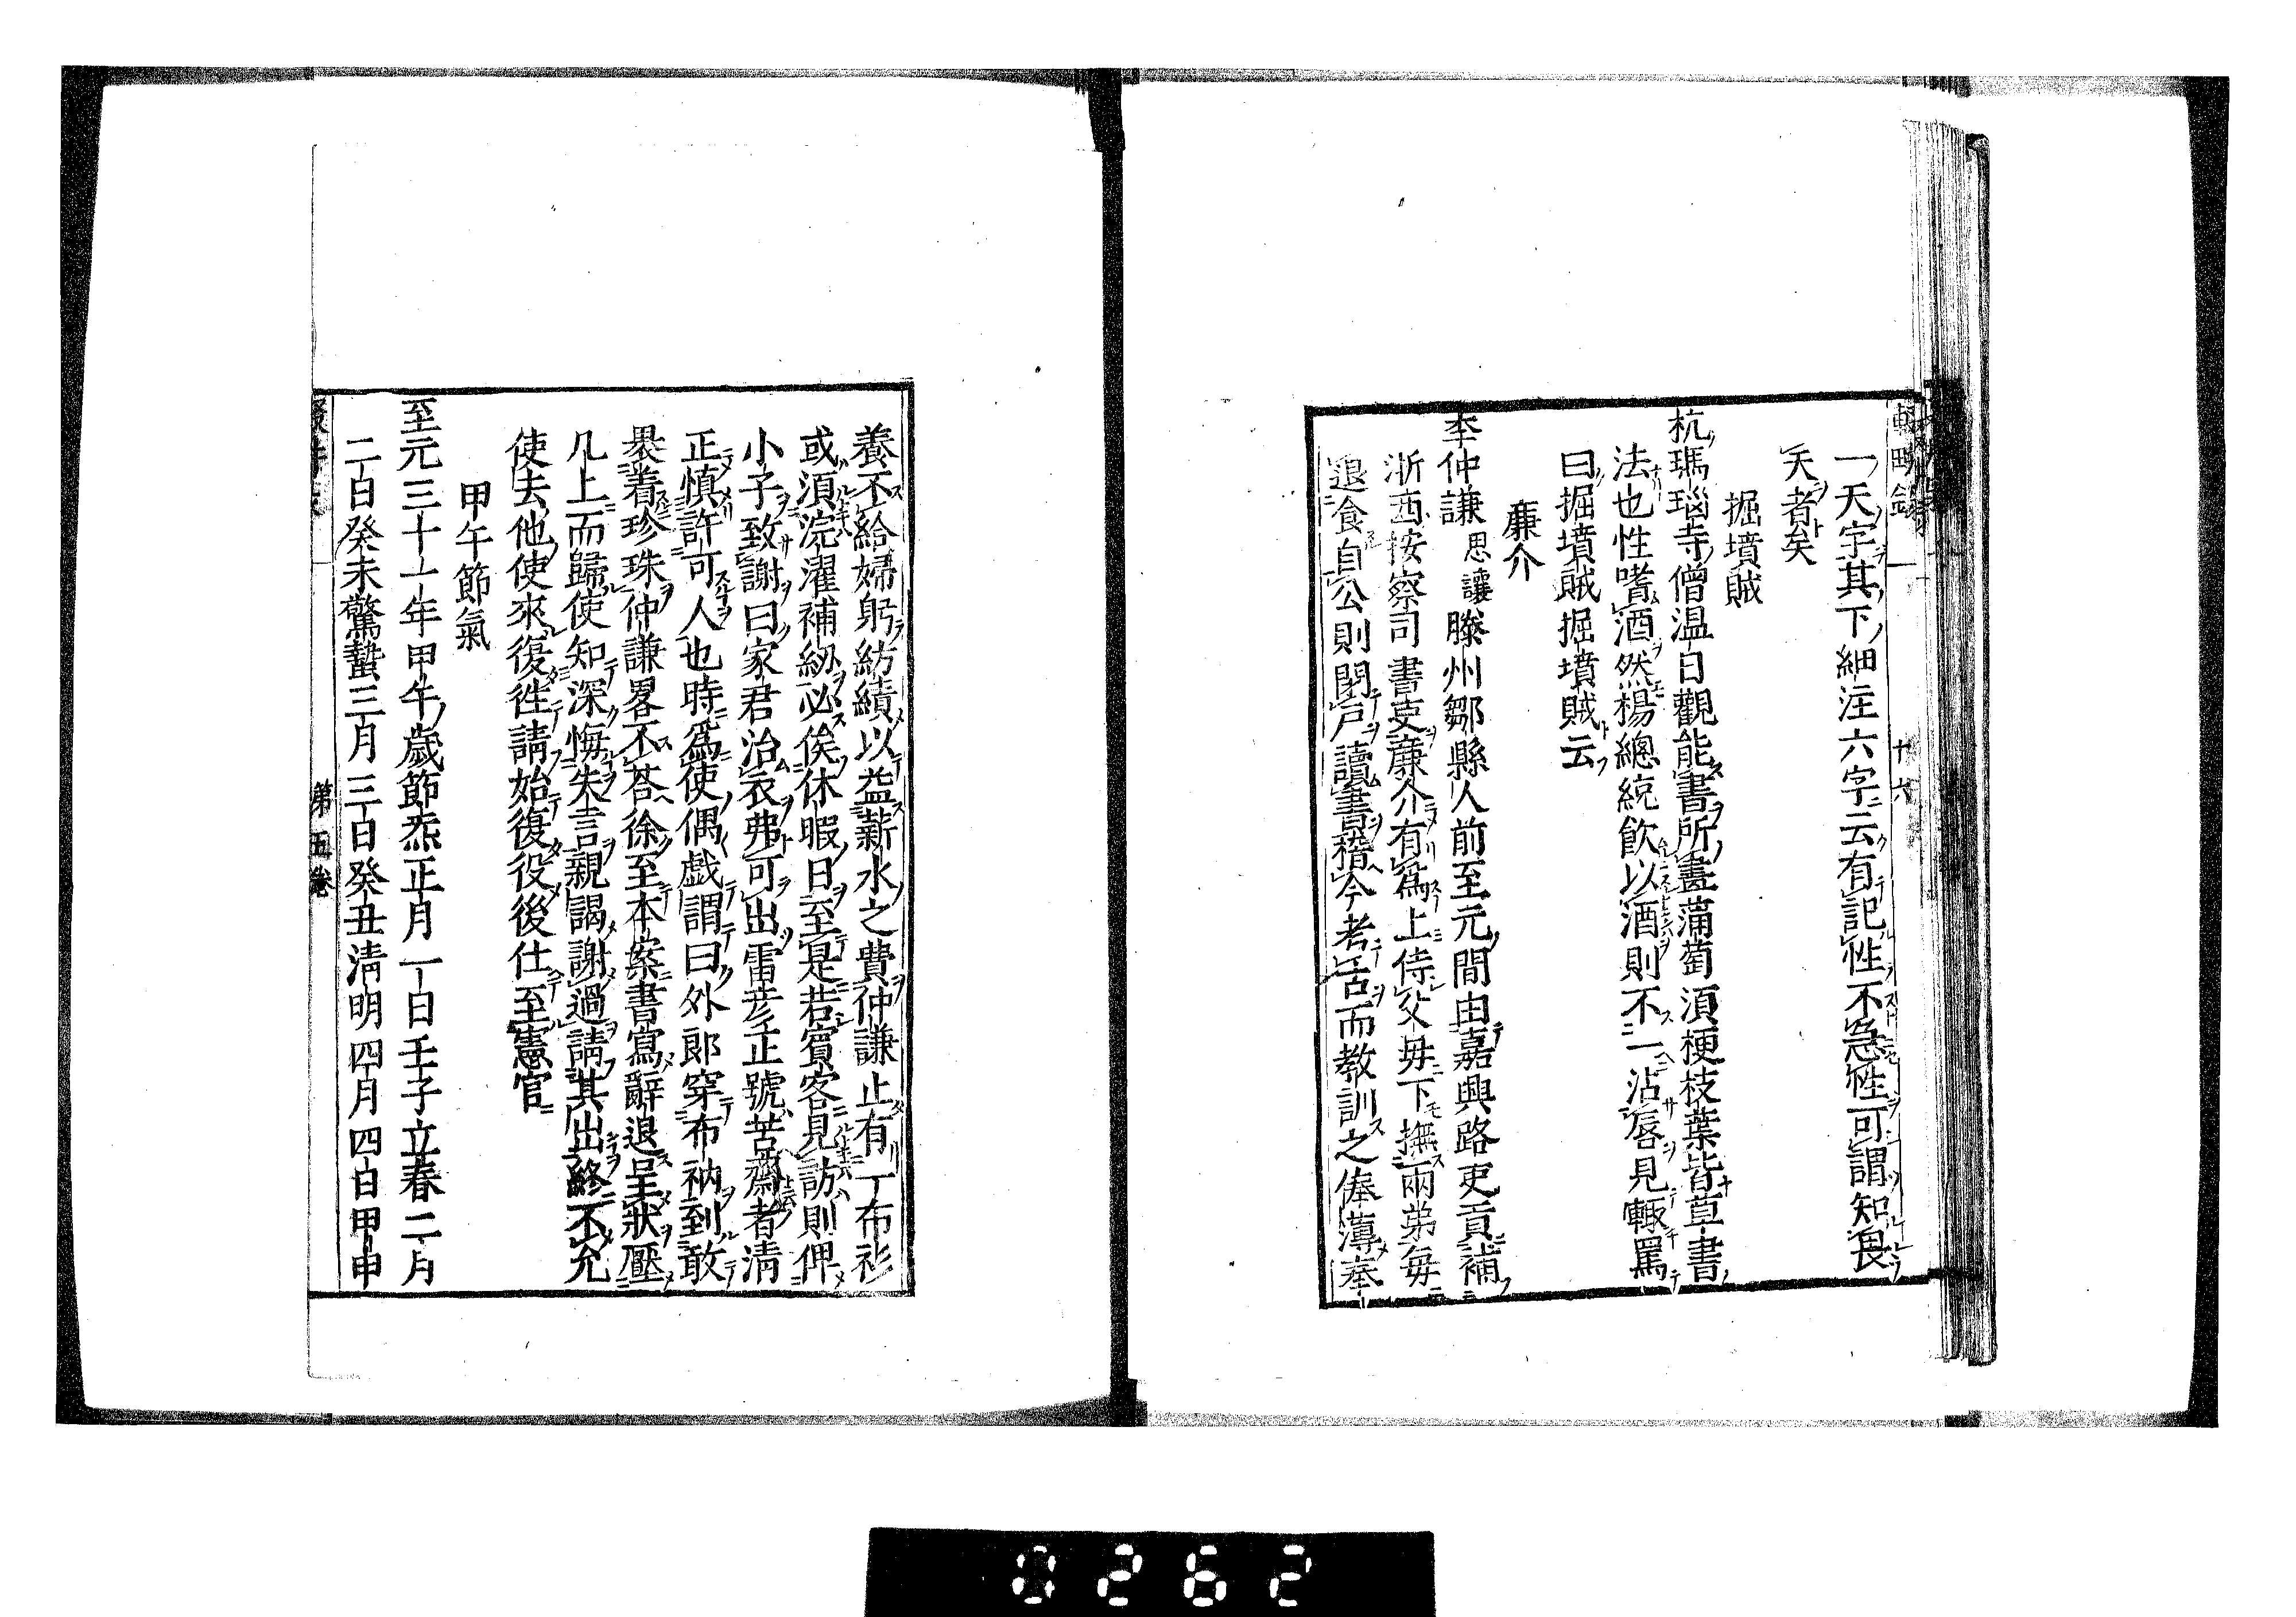 輟畊錄
十六
一天字其下細注六字云有記性不急性可謂知長
天者矣
掘墳賊
杭瑪瑙寺僧温日觀能書所畫蒲萄須梗枝葉皆草書
法也性嗜酒然楊總統飲以酒則不一沾唇見輒罵
曰掘墳賊掘墳賊云
廉介
李仲謙思讓滕州鄒縣人前至元間由嘉興路吏貢補
浙西按察司書吏廉介有爲上侍父毋下撫兩弟每
退食自公則閉戸讀書稽今考古而教訓之俸薄奉
養不給婦躬紡績以益薪水之費仲謙止有一布衫
或須浣濯補紉必俟休暇日至是若賓客見訪則俾
小子致謝曰家君治衣弗可出雷彦正號苦齋者清
正慎許可人也時爲使偶戯謂曰外郎穿布衲到敢
裏着珍珠仲謙畧不荅徐至本案書寫辭退呈狀壓
几上而歸使知深悔失言親謁謝過請其出終不允
使去他使來復徃請始復役後仕至憲官
甲午節氣
至元三十一年甲午歲節炁正月一日壬子立春二月
二日癸未驚蟄三月三日癸丑清明四月四日甲申
第五卷